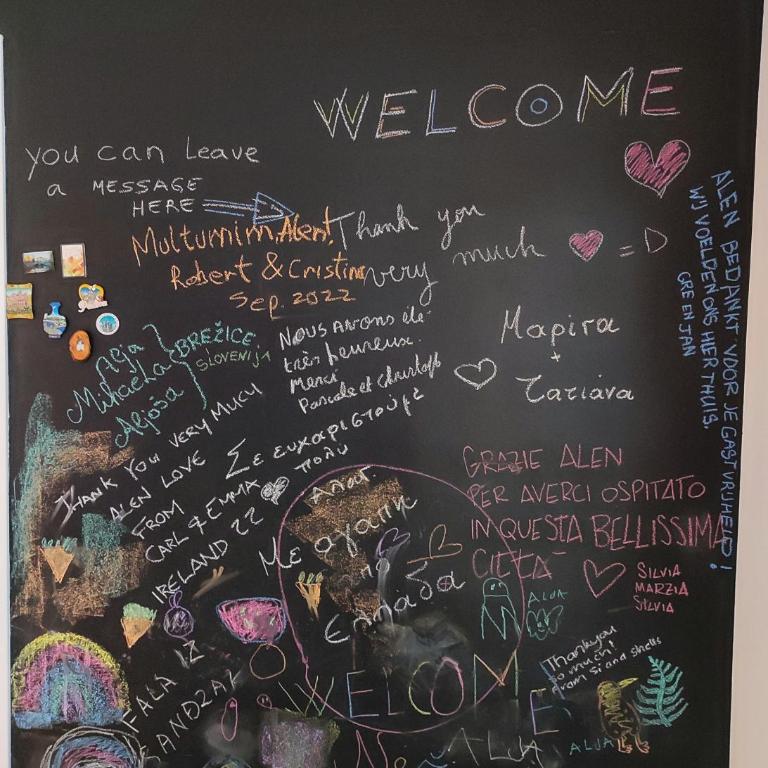 WELCOME
you can Leave
a MESSAGE
HERE
Multumim, Alen!
Robert & Cristina
Sep. 2022
Thank you
very much
= D
ALEN BEDANKT VOOR JE GASTVRIJHEID!
WIJ VOELDEN ONS HIER THUIS.
GRE EN JAN
Alja
Mihaela
Aljoša
BREŽICE
SLOVENIJA
Nous avons été
très heureux.
Merci
Pascale et Christoph
Μαρίνα
+
Τατιάνα
THANK YOU VERY MUCH
ALEN LOVE
FROM
CARL & EMMA
IRELAND 22
Σε ευχαριστούμε
πολύ
Με αγάπη
από
Ελλάδα
GRAZIE ALEN
PER AVERCI OSPITATO
IN QUESTA BELLISSIMA
CITTÀ
SILVIA
MARZIA
SILVIA
ALJA
Thank you
so much!
From Si and shells
HVALA
WELCOME
ALJA
ALJA